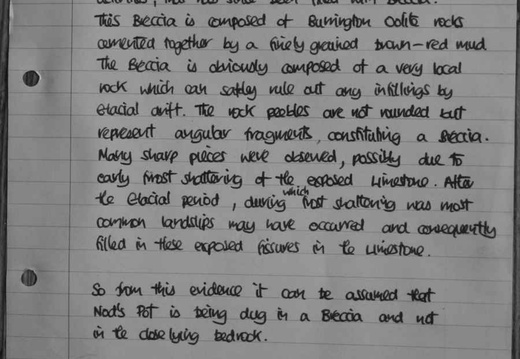 This Breccia is composed of Burrington Oolite rocks
cemented together by a finely grained brown-red mud
The Breccia is obviously composed of a very local
rock which can safely rule out any infillings by
Glacial drift. The rock peebles are not rounded but
represent angular fragments, constituting a Breccia.
Many sharp pieces were observed, possibly due to
early frost shattering of the exposed Limestone. After
the Glacial period, during which frost shattering was most
common landslips may have occurred and consequently
filled in these exposed fissures in the Limestone.
So from this evidence it can be assumed that
Nod's Pot is being dug in a Breccia and not
in the close lying bedrock.